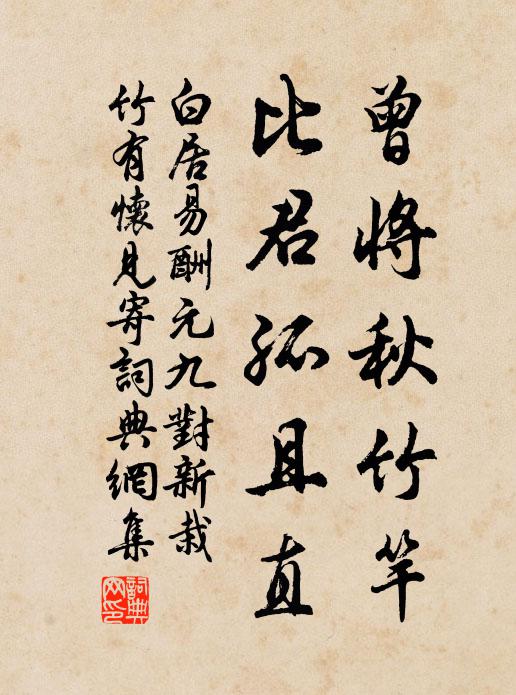 曾將秋竹竿
比君孤且直
白居易酬元九對新栽
竹有懷見寄詞典網集
詞典網印